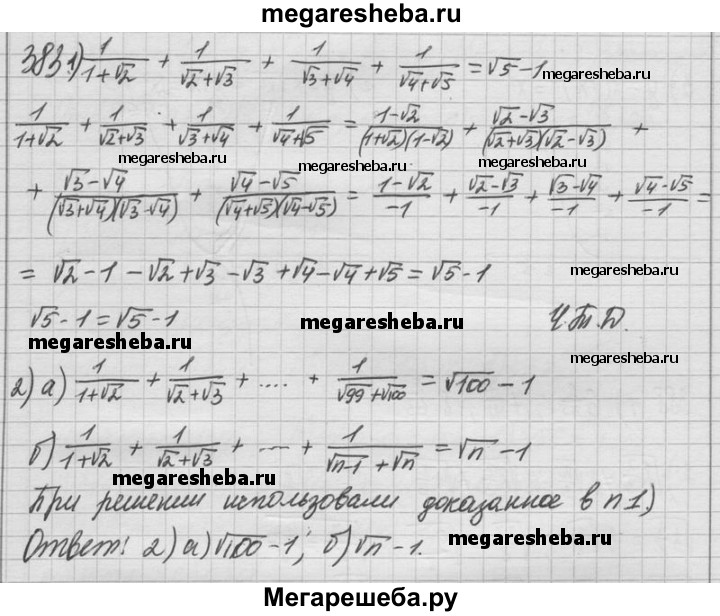 megaresheba.ru
383 1) 1/(1+√2) + 1/(√2+√3) + 1/(√3+√4) + 1/(√4+√5) = √5-1
megaresheba.ru
1/(1+√2) + 1/(√2+√3) + 1/(√3+√4) + 1/(√4+√5) = (1-√2)/((1+√2)(1-√2)) + (√2-√3)/((√2+√3)(√2-√3)) +
megaresheba.ru megaresheba.ru
+ (√3-√4)/((√3+√4)(√3-√4)) + (√4-√5)/((√4+√5)(√4-√5)) = (1-√2)/-1 + (√2-√3)/-1 + (√3-√4)/-1 + (√4-√5)/-1 =
= √2-1-√2+√3-√3+√4-√4+√5 = √5-1
megaresheba.ru
√5-1=√5-1 Ч.Т.Д.
megaresheba.ru
megaresheba.ru
megaresheba.ru
2) а) 1/(1+√2) + 1/(√2+√3) + .... + 1/(√99+√100) = √100-1
б) 1/(1+√2) + 1/(√2+√3) + .... + 1/(√n-1+√n) = √n-1
megaresheba.ru
При решении использовали доказанное в п 1)
Ответ: 2) а) √100-1; б) √n-1.
megaresheba.ru
Мегарешеба.ру